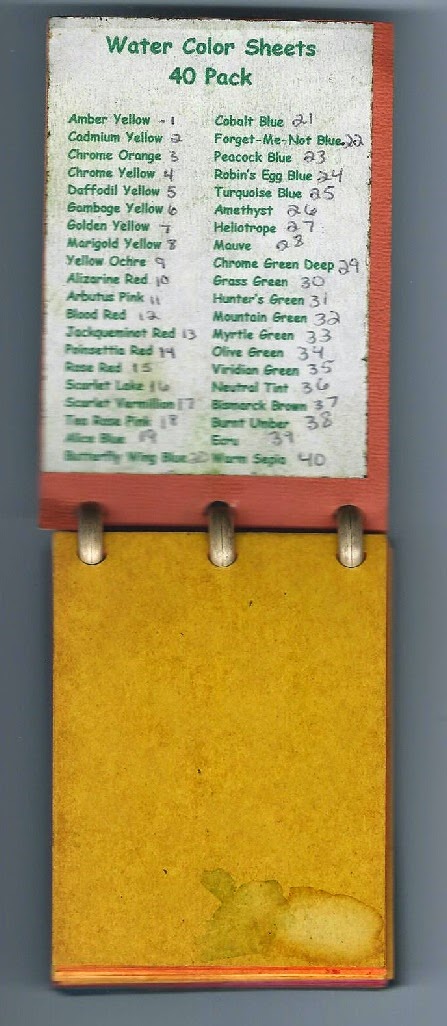 Water Color Sheets
40 Pack
Amber Yellow - 1
Cadmium Yellow 2
Chrome Orange 3
Chrome Yellow 4
Daffodil Yellow 5
Gamboge Yellow 6
Golden Yellow 7
Marigold Yellow 8
Yellow Ochre 9
Alizarine Red 10
Arbutus Pink 11
Blood Red 12
Jackqueminot Red 13
Poinsettia Red 14
Rose Red 15
Scarlet Lake 16
Scarlet Vermillion 17
Tea Rose Pink 18
Alice Blue 19
Butterfly Wing Blue 20
Cobalt Blue 21
Forget-Me-Not Blue 22
Peacock Blue 23
Robin's Egg Blue 24
Turquoise Blue 25
Amethyst 26
Heliotrope 27
Mauve 28
Chrome Green Deep 29
Grass Green 30
Hunter's Green 31
Mountain Green 32
Myrtle Green 33
Olive Green 34
Viridian Green 35
Neutral Tint 36
Bismarck Brown 37
Burnt Umber 38
Ecru 39
Warm Sepia 40